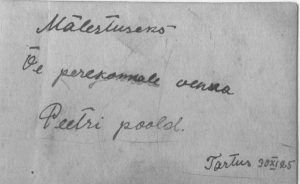 Mälestuseks
Õe perekonnale venna
Peetri poold.
Tartus 30 XI 25